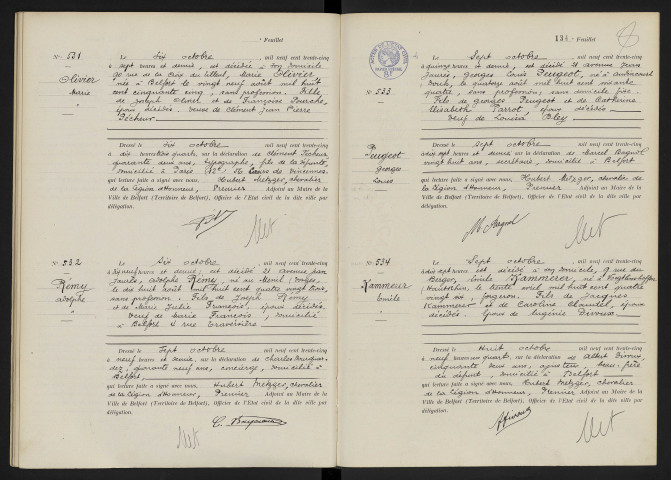 Feuillet
N° 531
Olivier
Marie
Le Six octobre, mil neuf cent trente-cinq
à sept heures et demie, est décédée à son domicile
rue de la Croix du Tilleul, Marie Olivier,
née à Belfort le vingt neuf août mil huit
cent cinquante cinq, sans profession. Fille
de Joseph et de Françoise
époux décédés. Veuve de Clément Jean Pierre
Pécheur
Dressé le Six octobre, mil neuf cent trente-cinq
à dix heures trois quarts, sur la déclaration de Clément Pécheur
quarante deux ans, typographe, fils de la défunte,
domicilié à Paris 12e, Cours de Vincennes
qui lecture faite a signé avec nous, Hubert Metzger, chevalier
de la Légion d'Honneur, Premier Adjoint au Maire de la
Ville de Belfort (Territoire de Belfort), Officier de l'Etat civil de la dite ville par
délégation.
Met
N° 532
Rémy
Adolphe
Le Six octobre, mil neuf cent trente-cinq
à heures et demie, est décédé 21 avenue Jean
Jaurès, Adolphe Rémy, né au Menil, Vosges,
le dix huit août mil huit cent quatre vingt trois,
sans profession. Fils de Joseph Rémy
et de Marie Julie François, époux décédés.
Veuf de Marie François, domicilié
à Belfort 4 rue Traversière
Dressé le Sept octobre, mil neuf cent trente-cinq
à neuf heures et demie, sur la déclaration de Charles
quarante neuf ans, concierge, domicilié à
Belfort,
qui lecture faite a signé avec nous, Hubert Metzger, chevalier
de la Légion d'Honneur, Premier Adjoint au Maire de la
Ville de Belfort (Territoire de Belfort), Officier de l'Etat civil de la dite ville par
délégation.
Met
134 Feuillet
N° 533
Peugeot
Georges
Louis
Le Sept octobre, mil neuf cent trente-cinq
à quinze heures et demie, est décédé 21 avenue Jean
Jaurès, Georges Louis Peugeot, né à Audincourt
Doubs, le quatorze août mil huit cent soixante
quatre, sans profession, sans domicile fixe.
Fils de Georges Peugeot et de Catherine
Elisabeth Parrot, époux décédés
Veuf de Louisa Bley
Dressé le Sept octobre, mil neuf cent trente-cinq
à dix sept heures et demie sur la déclaration de Marcel Bagnol
vingt huit ans, secrétaire, domicilié à Belfort
qui lecture faite a signé avec nous, Hubert Metzger, chevalier de la
Légion d'Honneur, Premier Adjoint au Maire de la
Ville de Belfort (Territoire de Belfort), Officier de l'Etat civil de la dite ville par
délégation.
M Bagnol
Met
N° 534
Kammerer
Emile
Le Sept octobre, mil neuf cent trente-cinq
à dix sept heures est décédé à son domicile, 9 rue du
Berger, Emile Kammerer, né à
Haut-Rhin, le trente avril mil huit cent quatre
vingt six, forgeron. Fils de Jacques
Kammerer et de Caroline Claudel, époux
décédés. Epoux de Eugénie Divoux
Dressé le Huit octobre, mil neuf cent trente-cinq
à neuf heures un quart, sur la déclaration de Albert Divoux,
cinquante deux ans, ajusteur, beau-frère
du défunt, domicilié à Belfort
qui lecture faite a signé avec nous, Hubert Metzger, chevalier
de la Légion d'Honneur, Premier Adjoint au Maire de la
Ville de Belfort (Territoire de Belfort), Officier de l'Etat civil de la dite ville par
délégation.
Met